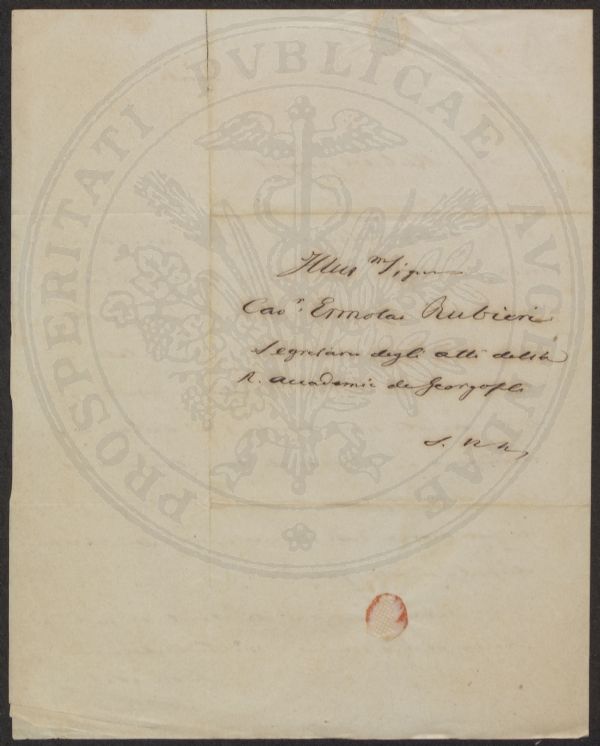 PROSPERITATI PVBLICAE AVGENDAE
Illus.mo Signore
Cav.r Ermolao Rubieri
Segretario degli atti della
R. Accademia de Georgofili